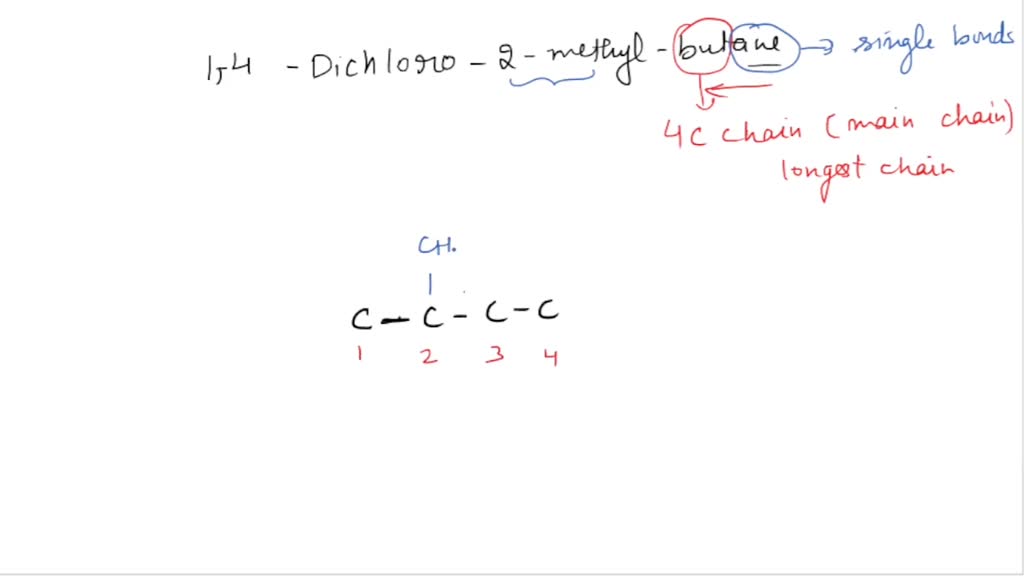 1,4 - Dichloro - 2 - methyl - butane → single bonds
4C chain (main chain)
longest chain
CH.
|
C - C - C - C
1 2 3 4